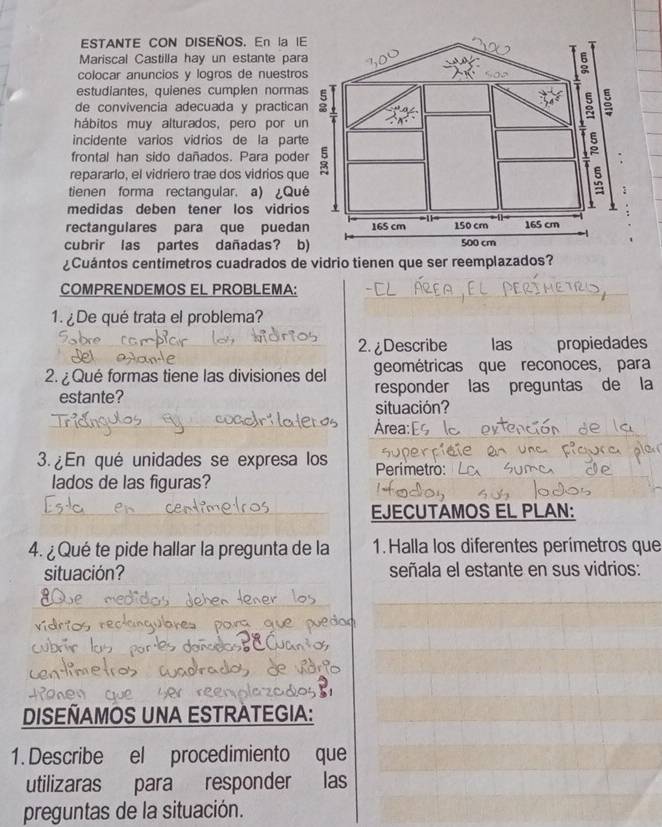 ESTANTE CON DISEÑOS. En la IE
Mariscal Castilla hay un estante para
colocar anuncios y logros de nuestros
estudiantes, quienes cumplen normas
de convivencia adecuada y practican
hábitos muy alturados, pero por un
incidente varios vidrios de la parte
frontal han sido dañados. Para poder
repararlo, el vidriero trae dos vidrios que
tienen forma rectangular. a) ¿Qué
medidas deben tener los vidrios
rectangulares para que puedan
cubrir las partes dañadas? b)
¿Cuántos centímetros cuadrados de vidrio tienen que ser reemplazados?
300
300
500
90 cm
80 cm
120 cm
410 cm
230 cm
70 cm
115 cm
165 cm 150 cm 165 cm
500 cm
COMPRENDEMOS EL PROBLEMA:
1. ¿De qué trata el problema?
Sobre cambiar los vidrios
del estante
2. ¿Qué formas tiene las divisiones del
estante?
Triángulos y cuadrilateros
3. ¿En qué unidades se expresa los
lados de las figuras?
Esta en centimetros
4. ¿Qué te pide hallar la pregunta de la
situación?
¿Que medidas deben tener los
vidrios rectangulares para que puedan
cubrir las partes dañadas? ¿Cuantos
centimetros cuadrados de vidrio
tienen que ser reemplazados?
DISEÑAMOS UNA ESTRATEGIA:
1. Describe el procedimiento que
utilizaras para responder las
preguntas de la situación.
-EL ÁREA, EL PERIMETRO,
2. ¿Describe las propiedades
geométricas que reconoces, para
responder las preguntas de la
situación?
Área: Es la extención de la
superficie en una figura
Perímetro: La suma de
todos sus lados
EJECUTAMOS EL PLAN:
1. Halla los diferentes perímetros que
señala el estante en sus vidrios: